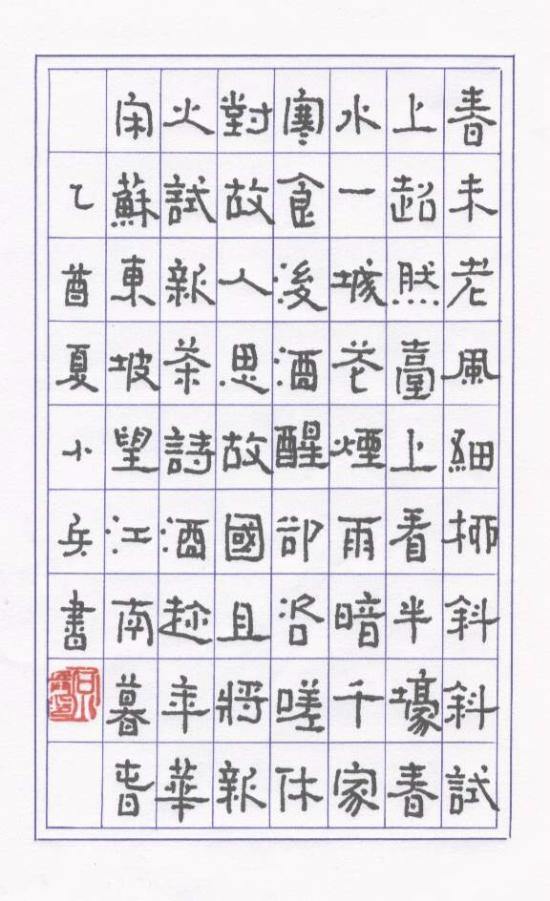 春未老風細柳斜斜試
上超然臺上看半壕春
水一城花煙雨暗千家
寒食後酒醒卻咨嗟休
對故人思故國且將新
火試新茶詩酒趁年華
閑蘇東坡望江南暮旾
乙酉夏小兵書